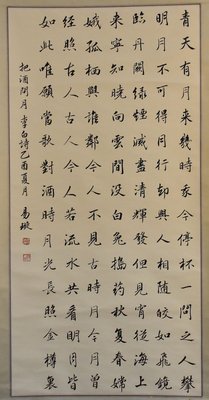 青天有月來幾時我今停杯一問之人攀
明月不可得月行卻與人相隨皎如飛鏡
臨丹闕綠煙滅盡清輝發但見宵從海上
來寧知曉向雲間沒白兔搗药秋復春嫦
娥孤栖與誰鄰今人不見古時月今月曾
經照古人古人今人若流水共看明月皆
如此唯願當歌對酒時月光長照金樽裏
把酒問月李白詩乙酉夏月 易璇